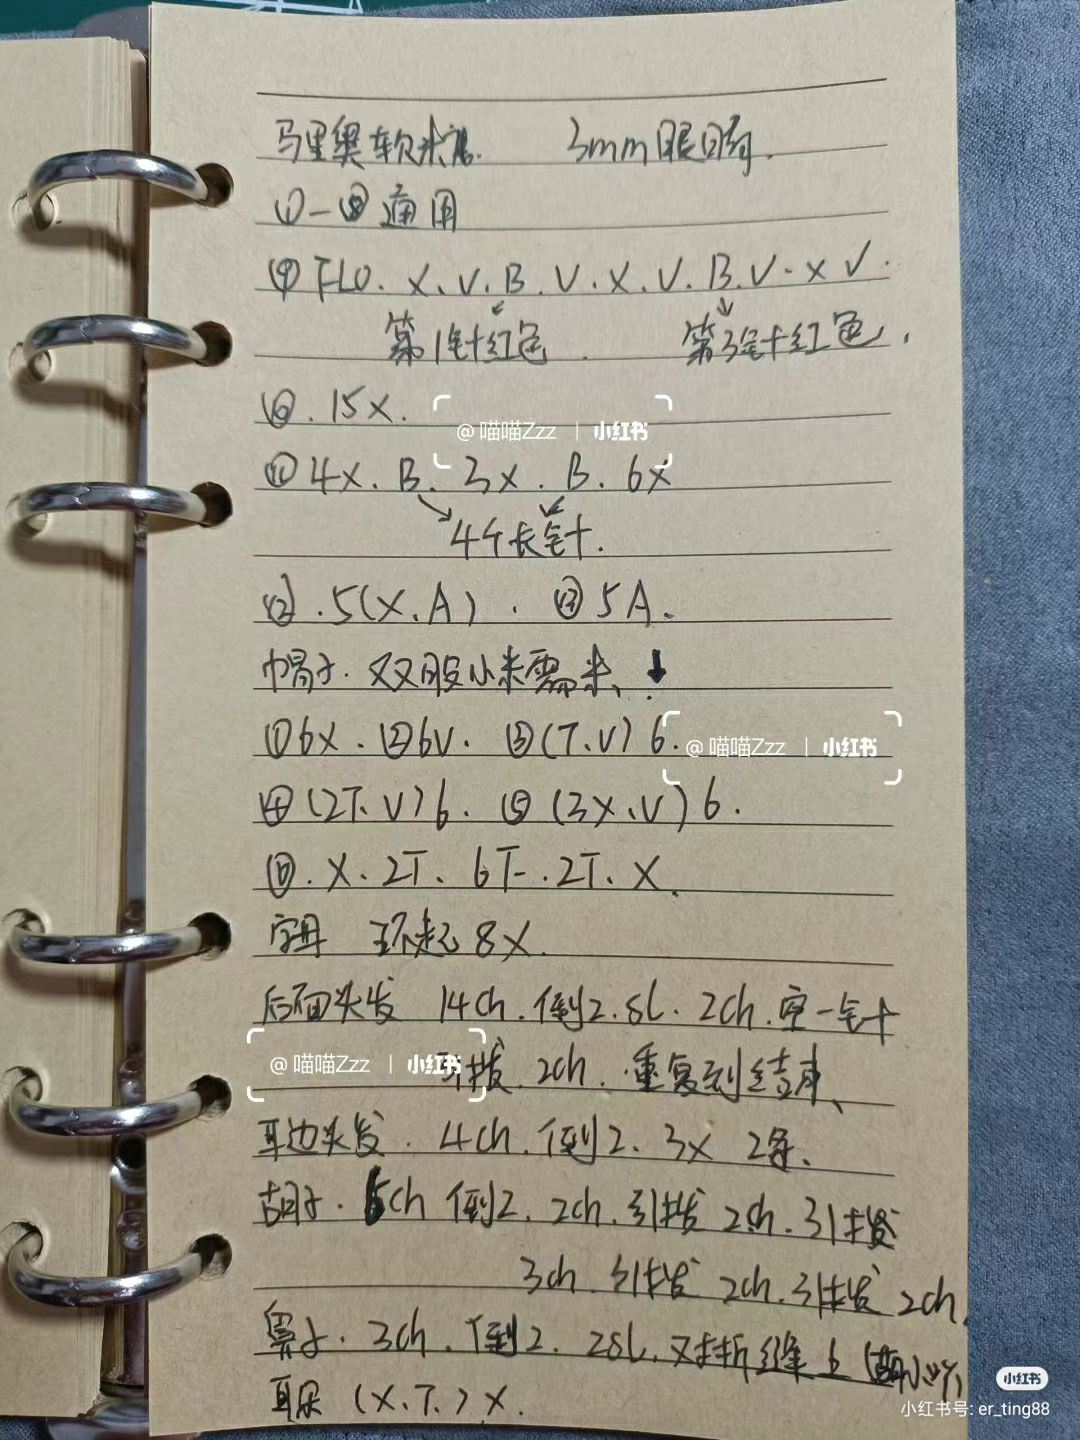 马里奥软米糕. 3mm眼睛.
①-⑧通用
⑨FLO. X. V. B. V. X. V. B. V. X V.
第1针红色. 第3针红色.
⑩. 15X.
@喵喵Zzz | 小红书
⑪4X. B. 3X. B. 6X
4个长针.
⑫. 5(X.A). ⑬5A.
帽子. 双股小米需米、↓
①6X. ②6V. ③(T.V)6.
@喵喵Zzz | 小红书
④(2T.V)6. ⑤(3X.V)6.
⑥. X. 2T. 6T. 2T. X.
字母 环起8X.
后面头发 14ch. 倒2. sl. 2ch. 空一针
@喵喵Zzz | 小红书
引拔. 2ch. 重复到结束、
耳边头发. 4ch. 倒2. 3X 2条.
胡子. 5ch 倒2. 2ch. 引拔 2ch. 引拔
3ch. 引拔 2ch. 引拔 2ch.
鼻子. 3ch. 倒2. 2sl. 对折缝
耳朵 (X.T.)X.
小红书
小红书号: er_ting88